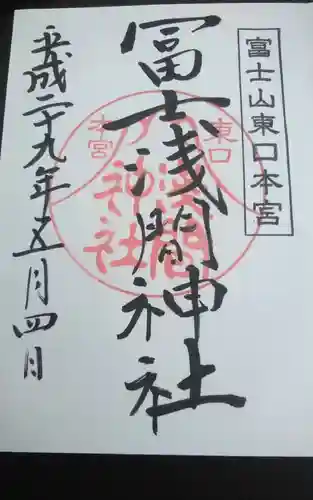 富士山東口本宮
冨士浅間神社
平成二十九年五月四日
東口
本宮
冨士浅間神社